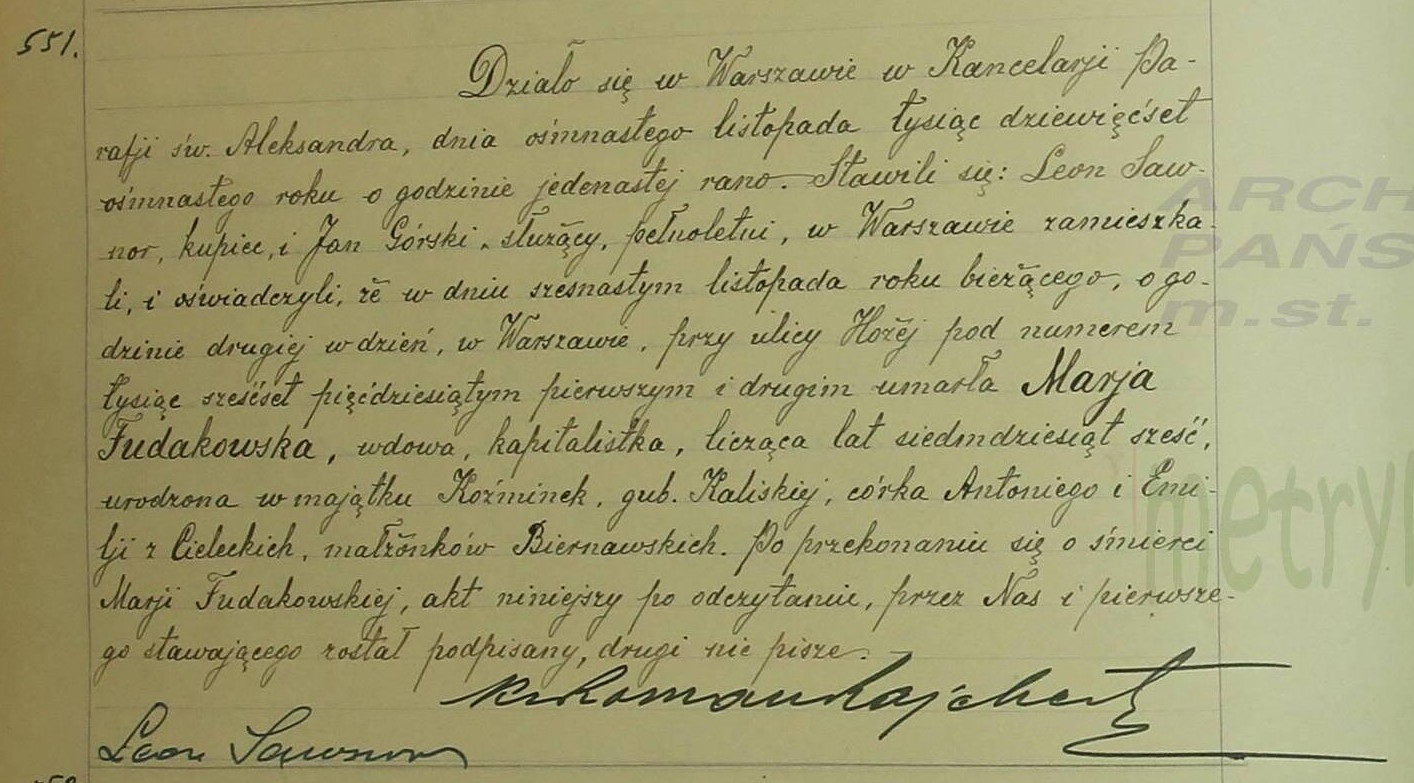 551.
Działo się w Warszawie w Kancelarji Pa-
rafji św. Aleksandra, dnia ośmnastego listopada tysiąc dziewięćset
ośmnastego roku o godzinie jedenastej rano. Stawili się: Leon Saw-
nor, kupiec, i Jan Górski, służący, pełnoletni, w Warszawie zamieszka-
li, i oświadczyli, że w dniu szesnastym listopada roku bieżącego, o go-
dzinie drugiej w dzień, w Warszawie, przy ulicy Hożej pod numerem
tysiąc sześćset pięćdziesiątym pierwszym i drugim umarła Marja
Fudakowska, wdowa, kapitalistka, licząca lat siedmdziesiąt sześć,
urodzona w majątku Koźminek, gub. Kaliskiej, córka Antoniego i Emi-
lji z Cieleckich, małżonków Biernawskich. Po przekonaniu się o śmierci
Marji Fudakowskiej, akt niniejszy po odczytaniu, przez Nas i pierwsze-
go stawającego został podpisany, drugi nie pisze.
Roman Rajchert
Leon Sawnor
ARCH
PAŃS
m.st.
metry